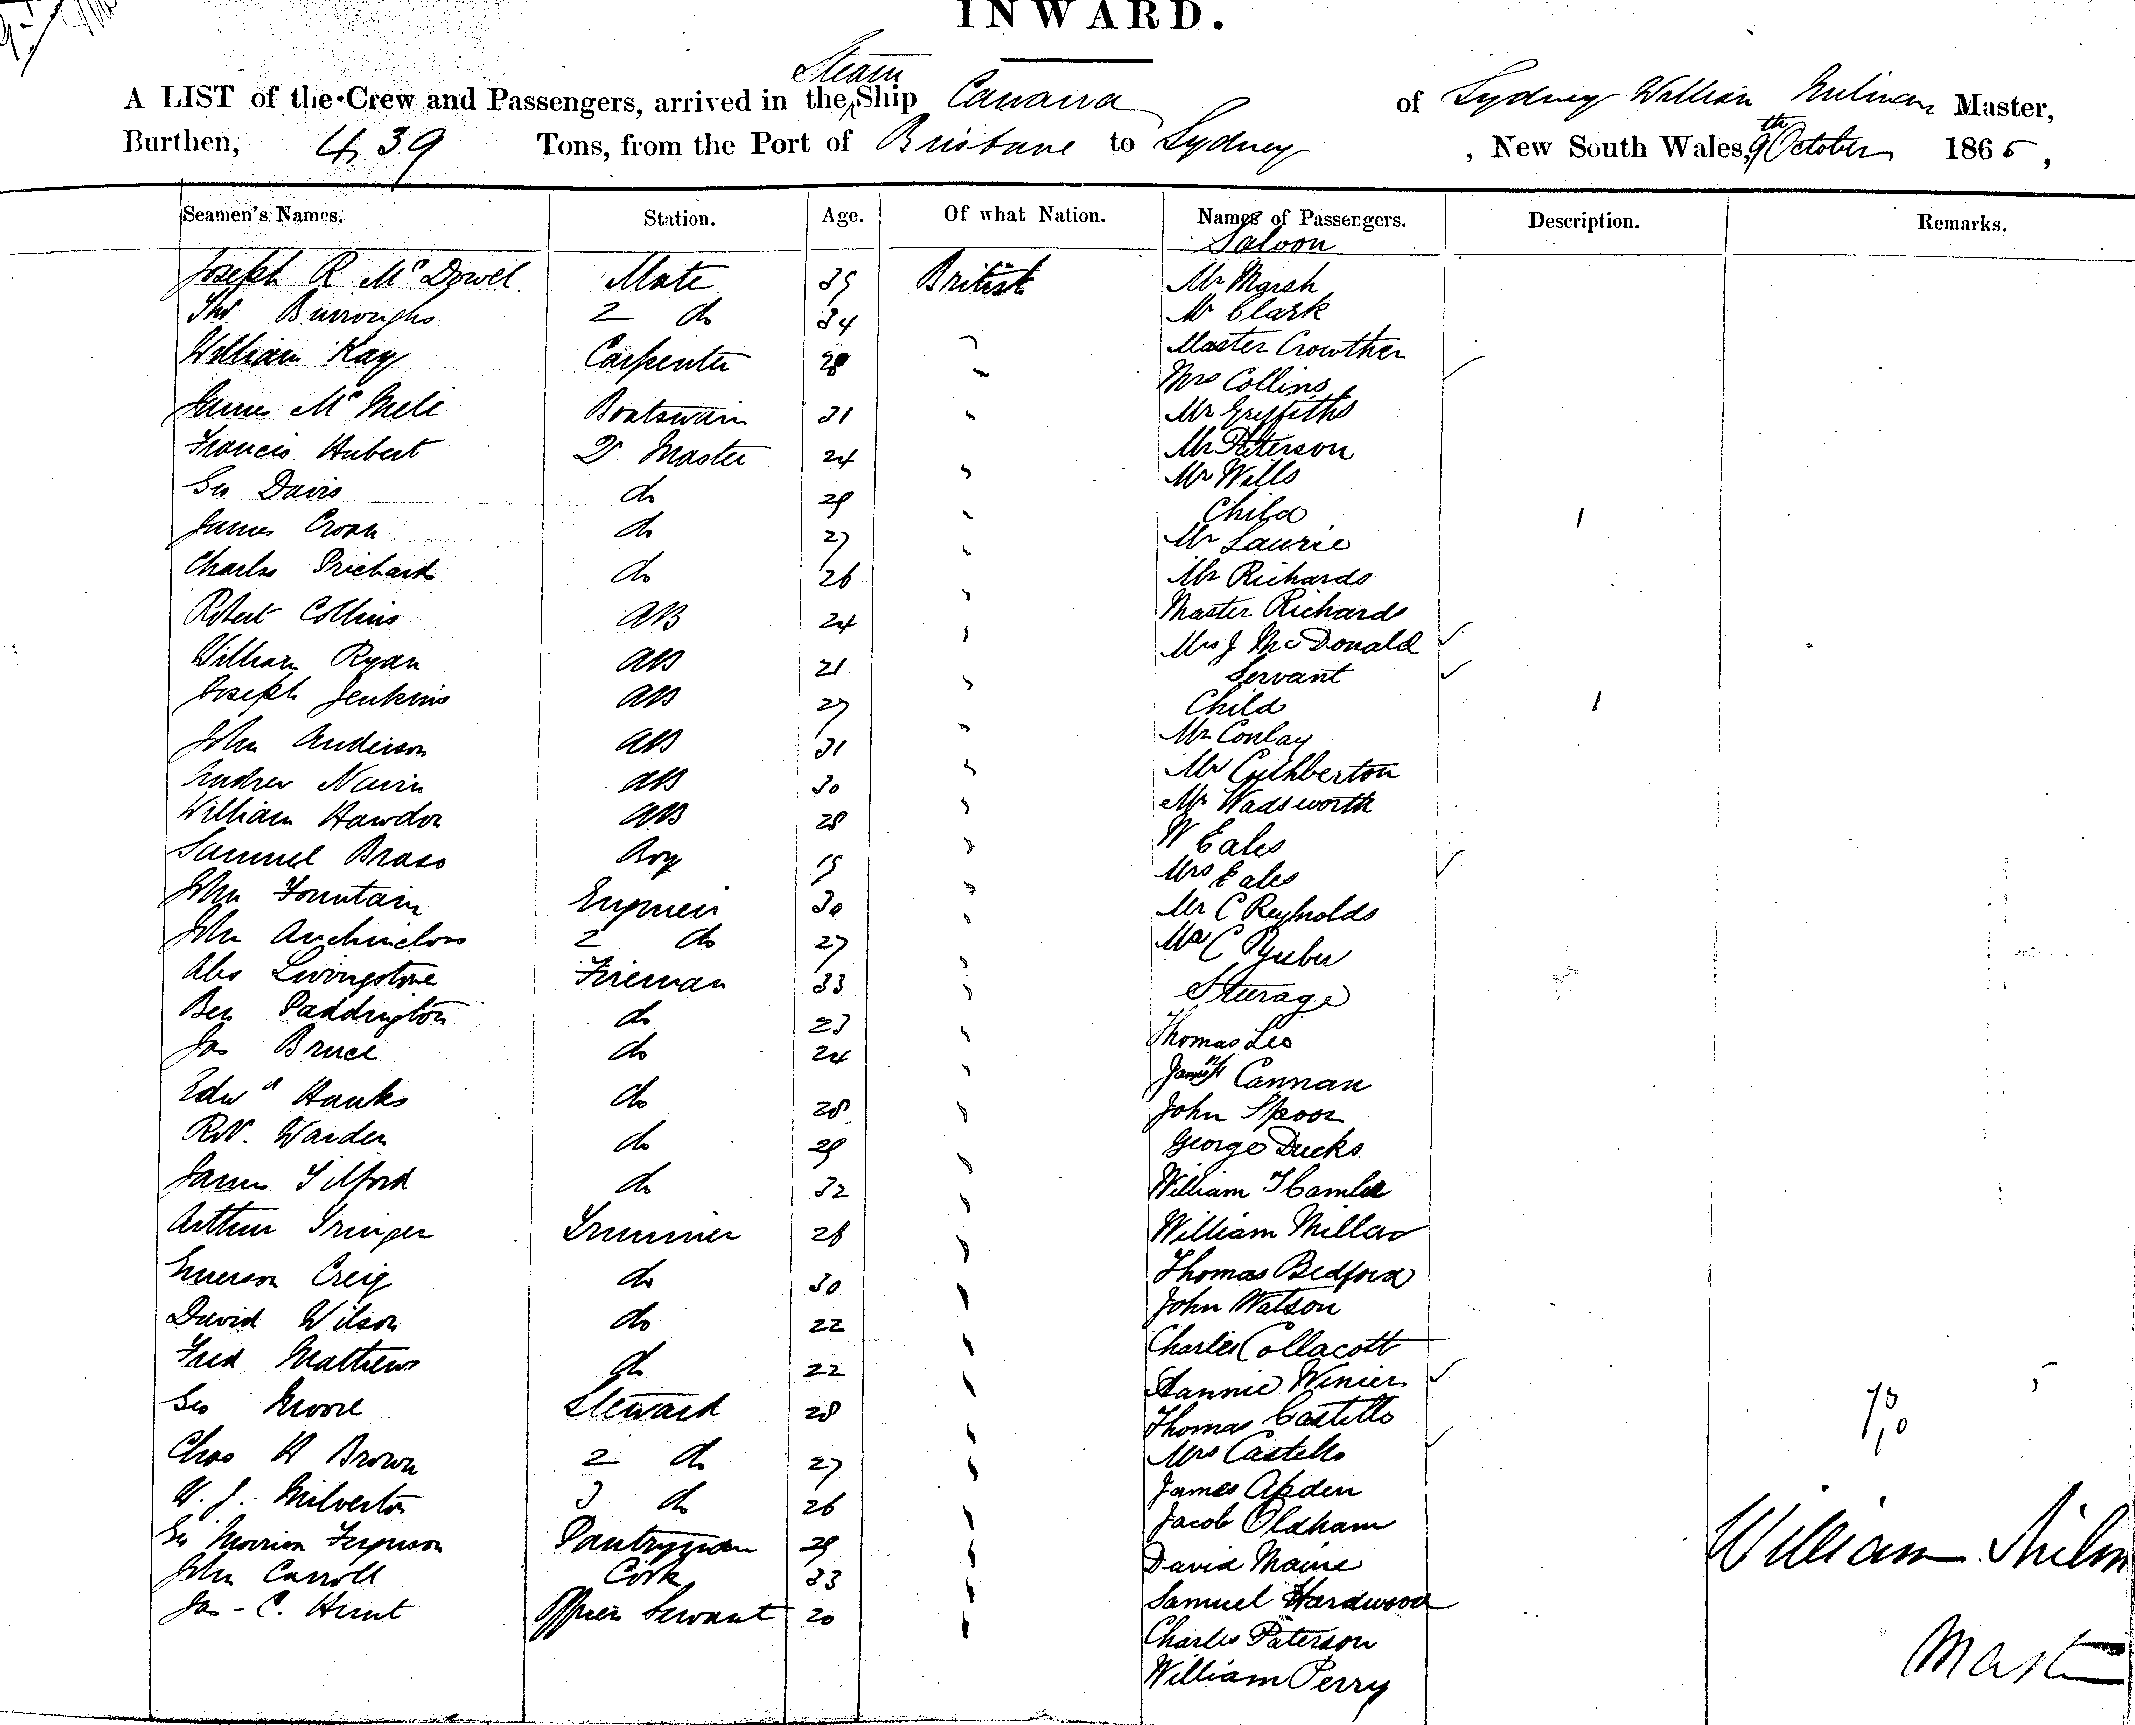 INWARD.
A LIST of the Crew and Passengers, arrived in the Steam Ship Cawarra of Sydney William Milman Master,
Burthen, 439 Tons, from the Port of Brisbane to Sydney, New South Wales, 9th October 1865,
Seamen's Names. Station. Age. Of what Nation. Names of Passengers. Description. Remarks.
Saloon
Joseph R McDowel Mate 39 British Mr Marsh
Thos Burroughs 2 do 34 Mr Clark
William Kay Carpenter 28 Master Crowther
Mrs Collins
James McNeil Boatswain 31 Mr Gryffiths
Francis Hubert Qr Master 24 Mr Paterson
Mr Wills
Geo Davis do 29 Child 1
James Croan do 27 Mr Laurie
Charles Prichard do 26 Mr Richards
Robert Collins AB 24 Master Richards
Mrs J McDonald
William Ryan AB 21 Servant
Joseph Jenkins AB 27 Child 1
John Anderson AB 31 Mr Conlay
Andrew Nairn AB 30 Mr Cuthberton
William Hawdon AB 28 Mr Wadsworth
W Eales
Samuel Brass Boy 19 Mrs Eales
John Fountain Engineer 30 Mr C Reynolds
John 2 do 27 Mr C
Alex Livingstone Fireman 33 Steerage
Ben Paddington do 23 Thomas Leo
Jas Bruce do 24 Cannan
Edwd Hanks do 28 John Spoor
Robt. Warden do 29 George Ducks
James Tilford do 32 William
Arthur Stringer Trimmer 26 William Millar
Emerson Creig do 30 Thomas Bedford
David Wilson do 22 John Watson
Charles Collacott
Fred Mathews do 22 Fannie Winier
Geo Moore Steward 28 Thomas Castello
Chas H Brown 2 do 27 Mrs Castello
W. J. Milverton 3 do 26 James Apden
Jacob Oldham
Geo Morrison Ferguson Pantryman 29 David Maine
John Carroll Cook 33 Samuel Hardwood
Jas. C. Hunt Officers Servant 20 Charles Paterson
William Perry
William Milm
Mast